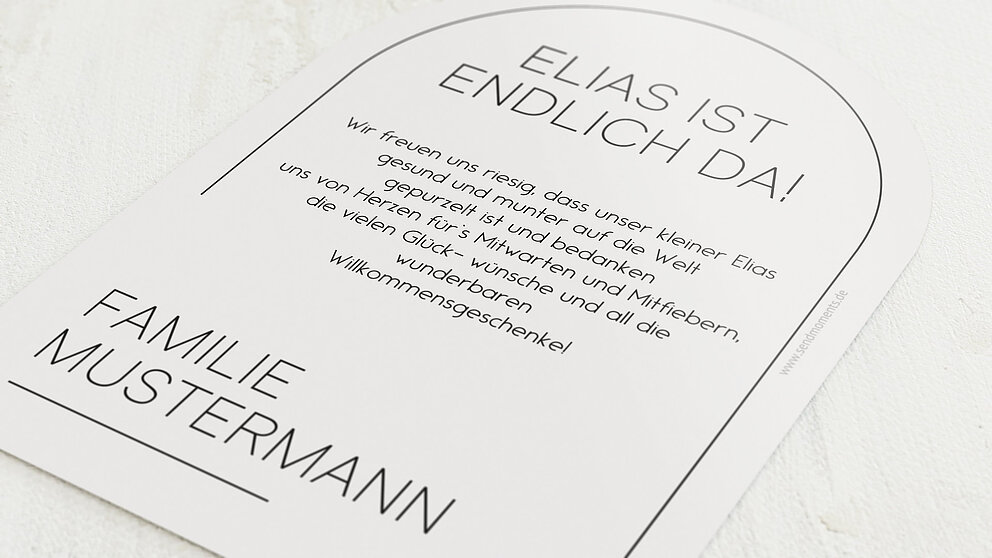 ELIAS IST
ENDLICH DA!
Wir freuen uns riesig, dass unser kleiner Elias
gesund und munter auf die Welt
gepurzelt ist und bedanken
uns von Herzen für's Mitwarten und Mitfiebern,
die vielen Glück- wünsche und all die
wunderbaren
Willkommensgeschenke!
FAMILIE
MUSTERMANN
www.sendmoments.de